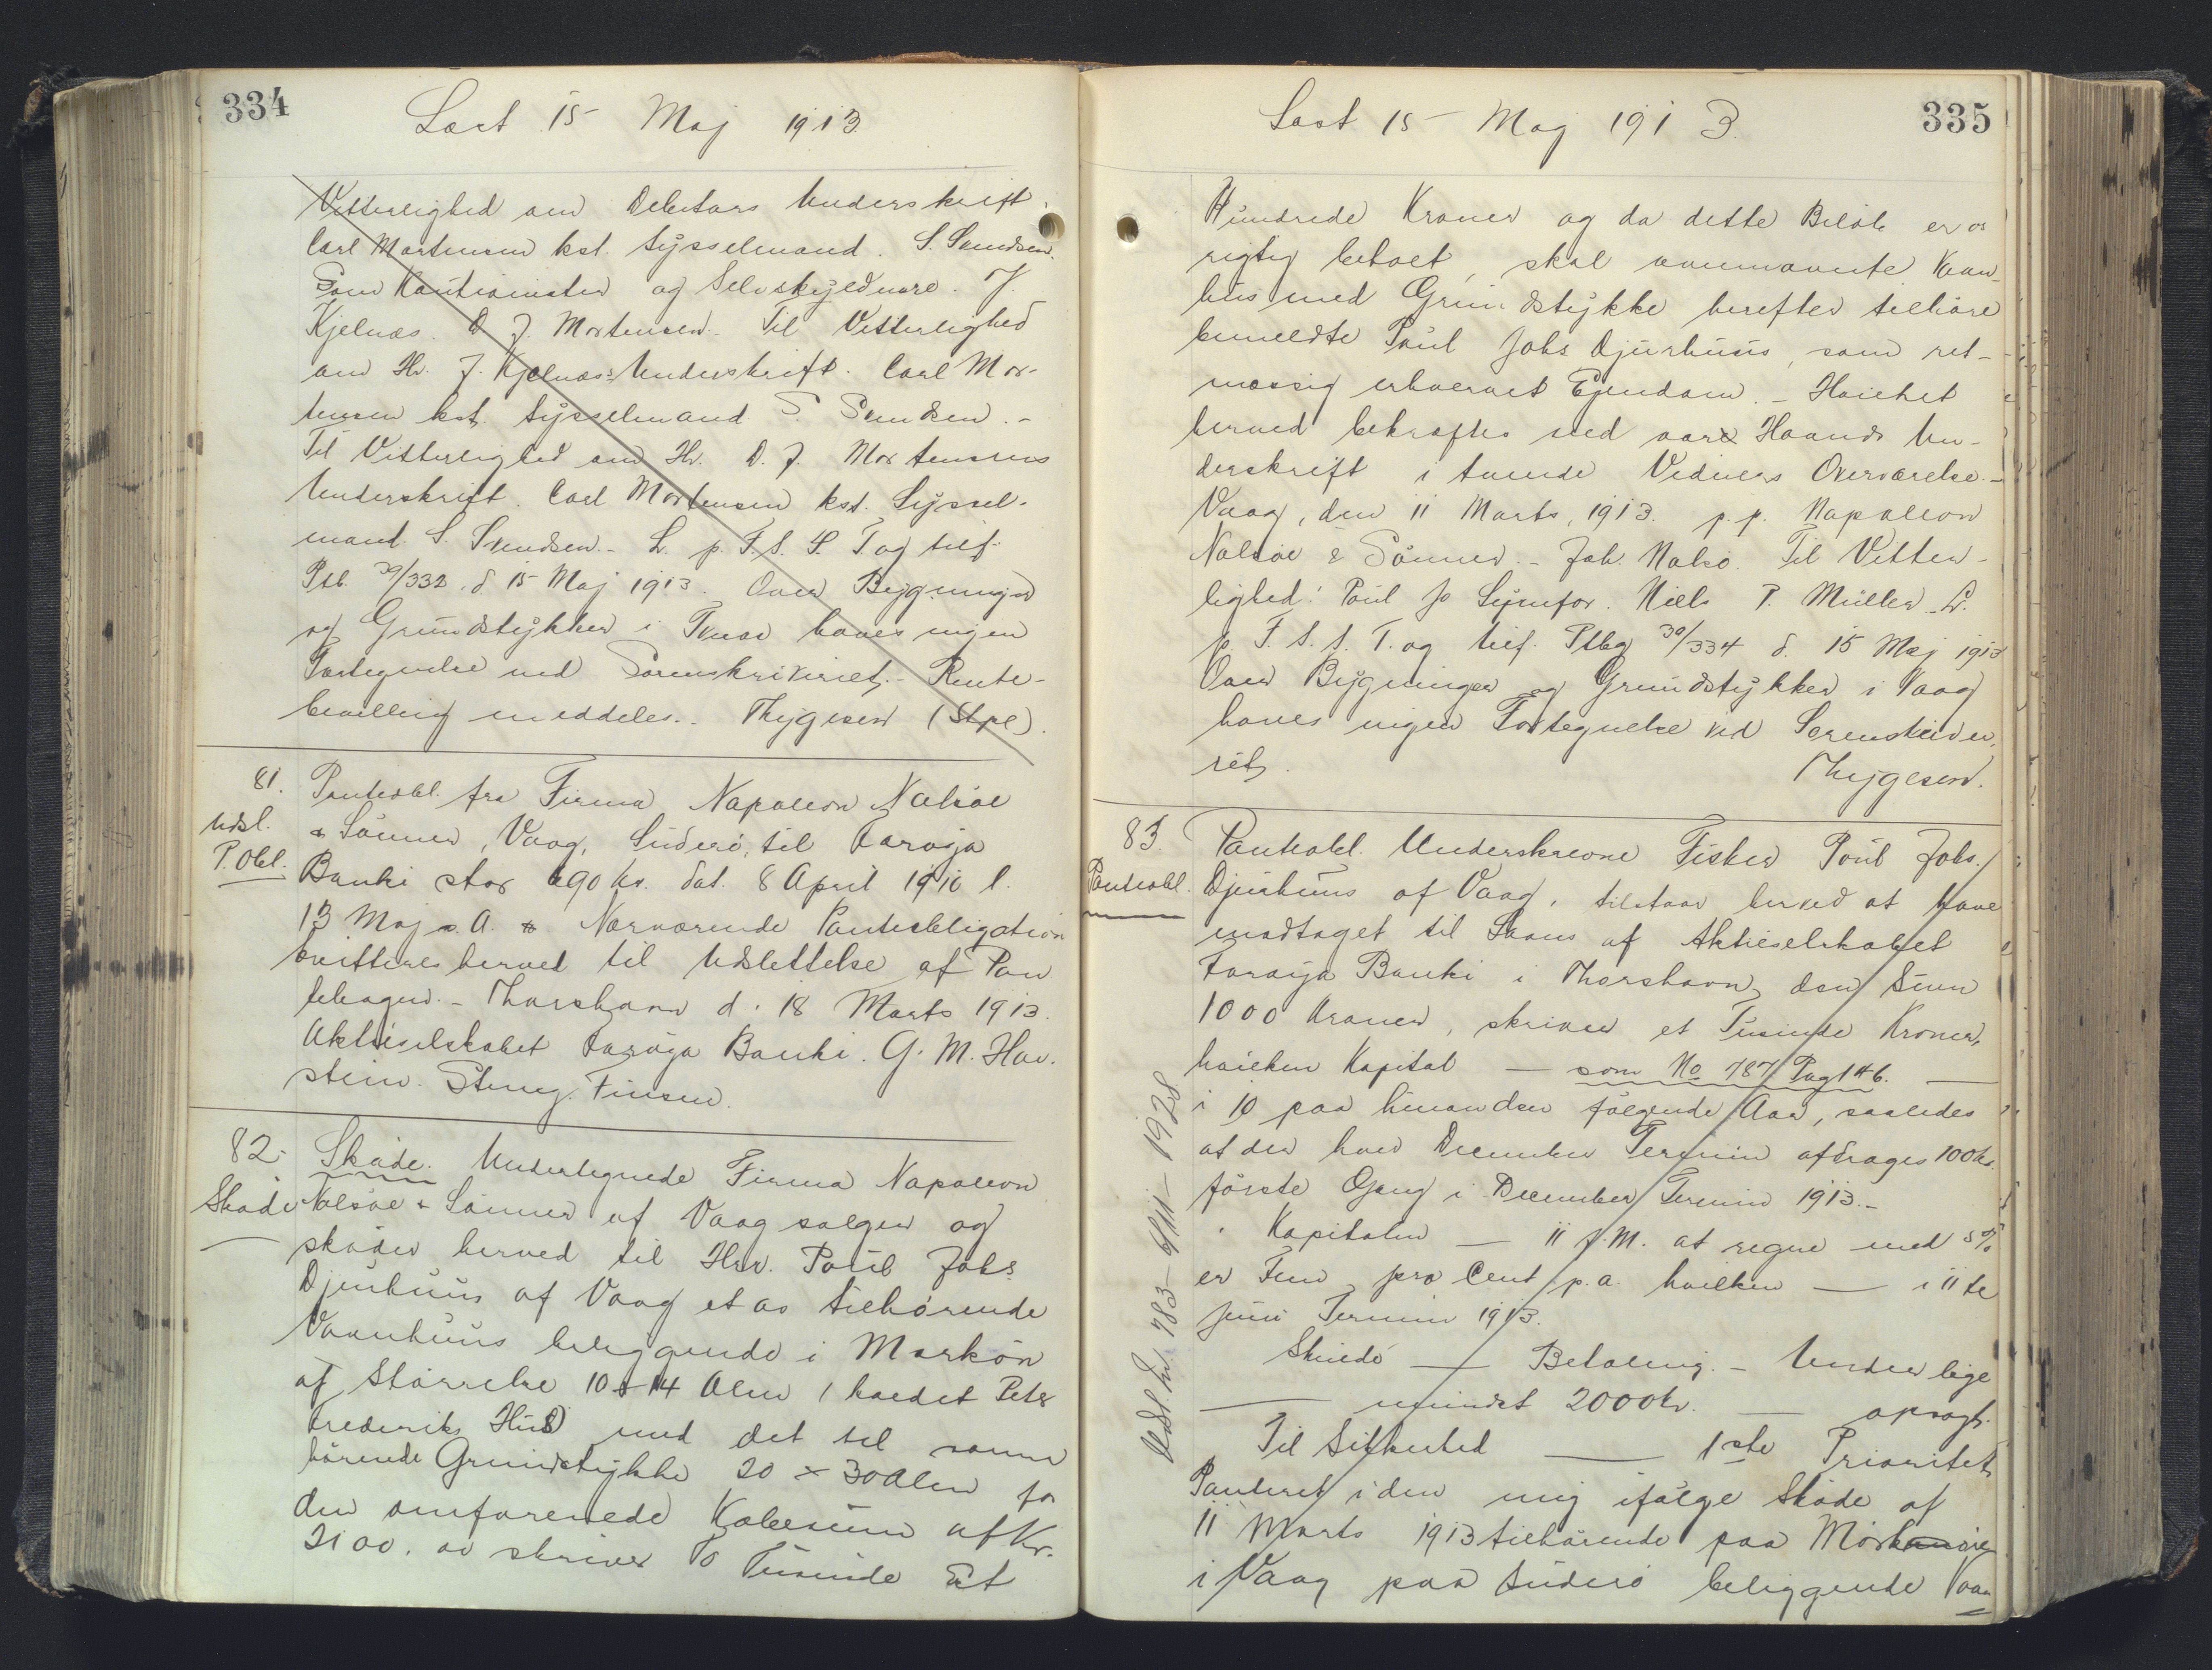 334
Læst 15 Maj 1913
Vitterlighed om Debitors Underskrift.
Carl Mortensen kst. Sysselmand. S. Svendsen.
Som Kautionister og Selvskyldnere. J.
Kjelnæs. D. J. Mortensen. Til Vitterlighed
om Hr. J. Kjelnæs's Underskrift. Carl Mor-
tensen kst. Sysselmand S. Svendsen. -
Til Vitterlighed om Hr. D. J. Mortensens
Underskrift. Carl Mortensen kst. Syssel-
mand. S. Svendsen. - L. p. F. S. S. T og tilf.
Ptb. 39/332. d 15 Maj 1913. Over Bygninger
og Grundstykker i haves ingen
Fortegnelse ved Sorenskriveriet. - Rente-
bevilling meddeles. . Thygesen (Stpl).
81.
Udsl.
P. Obl.
Panteobl. fra Firma Napoleon Nolsøe
& Sønner, Vaag, Suderø, til Førøja
Banki stor 690 Kr. dat. 8 April 1910 l.
13 Maj s. A. Nærværende Panteobligation
kvitteres herved til Udslettelse af Pan
tebogen. - Thorshavn d. 18 Marts 1913.
Aktieselskabet Førøja Banki. G. M. Hav.
stein. Steing. Finsen.
82.
Skøde
Skøde. Undertegnede Firma Napoleon
Nolsøe & Sønner af Vaag sælger og
skøder herved til Hrr. Poul Johs
Djurhuus af Vaag et os tilhørende
Vaanhuus beliggende i Markøn
af Størrelse 10 x 14 Alen (kaldet Peter
Frederiks Hus) med det til samme
hørende Grundstykke 20 x 30 Alen for
den omforenede Købesum af Kr.
2100. er skriver To Tusinde Et
335
Læst 15 Maj 1913.
Hundrede Kroner og da dette Beløb er os
rigtig betalt, skal ovennævnte Vaan-
hus med Grundstykke herefter tilhøre
bemeldte Poul Johs Djurhuus, som ret-
mæssig erhvervet Ejendom. - Hvilket
herved bekræftes med vore Haands Un-
derskrift i tvende Vidners Overværelse. -
Vaag, den 11 Marts, 1913. p. p. Napoleon
Nolsøe & Sønner. - Joh. Nolsø. Til Vitter-
lighed: Poul Niels P. Müller. L.
p. F. S. S. T. og tilf. Ptbg 39/334 d. 15 Maj 1913
Over Bygninger og Grundstykker i Vaag
haves ingen Fortegnelse ved Sorenskriver,
riet.
Thygesen.
83.
Panteobl.
Panteobl. Underskrevne Fisker Poul Johs.
Djurhuus af Vaag, tilstaar herved at have
modtaget til Laans af Aktieselskabet
Førøja Banki i Thorshavn, den Sum
1000 Kroner, skriver et Tusinde Kroner,
hvilken Kapital — som No 787 Pag 146. —
i 10 paa hinanden følgende Aar, saaledes
at der hver December Termin afdrages 100 kr.
første Gang i December Termin 1913. -
Kapitalen — 11 f. M. at regne med 5%
er Fem pro Cent p. a. hvilken — i 11 te
Juni Termin 1913.
Skulde — Betaling. - Under lige
— mindst 2000 kr. — opsagt.
Til Sikkerhed — 1ste Prioritets
Panteret i den mig ifølge Skøde af
11 Marts 1913 tilhørende paa
i Vaag paa Suderø beliggende Vaan
Udsl. No 783 - 6/11 - 1928